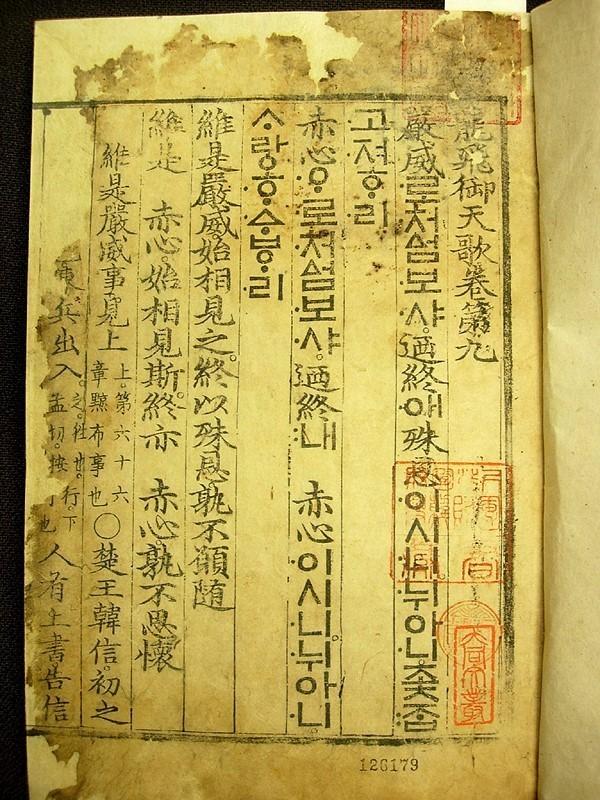 龍飛御天歌卷第九
嚴威로처ᅀᅥᆷ보샤。迺終애殊恩이시니뉘아니좇ᄌᆞᆸ
고져ᄒᆞ리
赤心ᄋᆞ로처ᅀᅥᆷ보샤。迺終내 赤心이시니。뉘아니
ᄉᆞ랑ᄒᆞᅀᆞᄫᆞ리
維是嚴威始相見之。終以殊恩孰不願隨
維是 赤心始相見斯。終亦 赤心孰不思懷
維是嚴威事見上
上。第六十六
章黥布事也
○楚王韓信。初之
陳兵出入。
之。往也。行。下
孟切。按 也
人有上書告信
126179